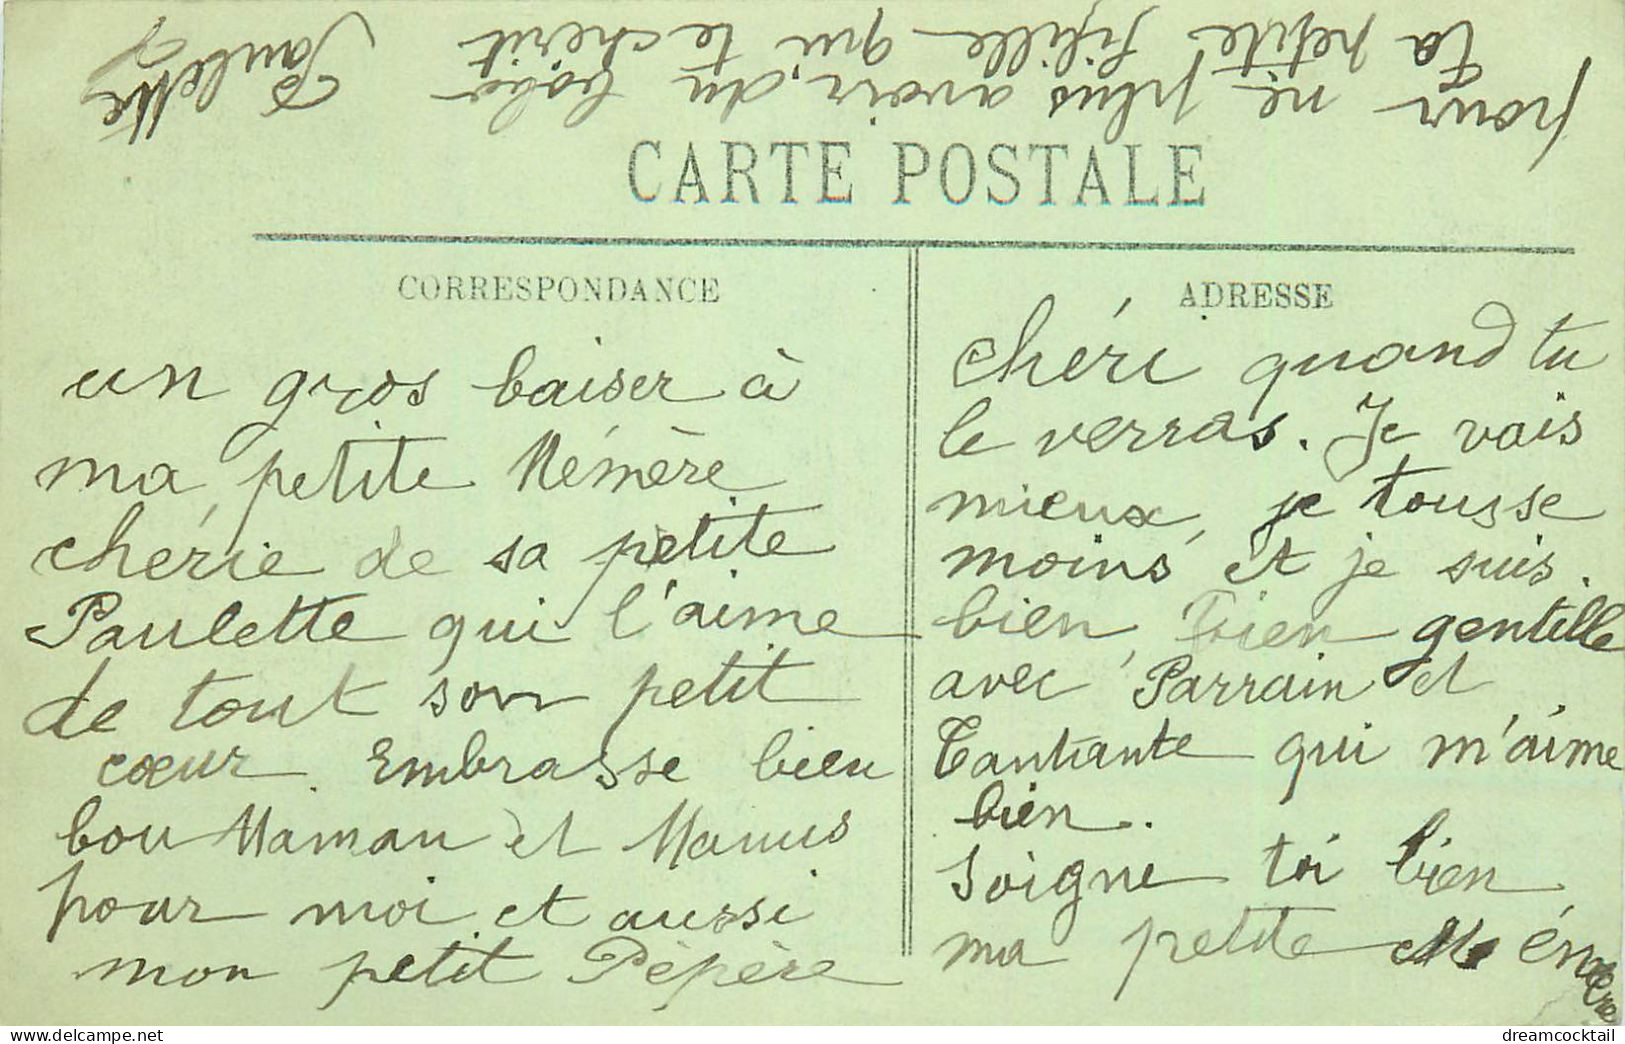 CARTE POSTALE
CORRESPONDANCE
un gros baiser à
ma petite Mémère
chérie de sa petite
Paulette qui l'aime
de tout son petit
cœur. Embrasse bien
bou Maman et Manus
pour moi et aussi
mon petit Pépère
ADRESSE
chéri quand tu
le verras. Je vais
mieux, je tousse
moins et je suis
bien, bien gentille
avec Parrain et
Tantante qui m'aime
bien.
Soigne toi bien
ma petite Mémère
pour ne plus avoir du bobo
Ta petite fifille qui te chérit
Paulette
dreamcocktail